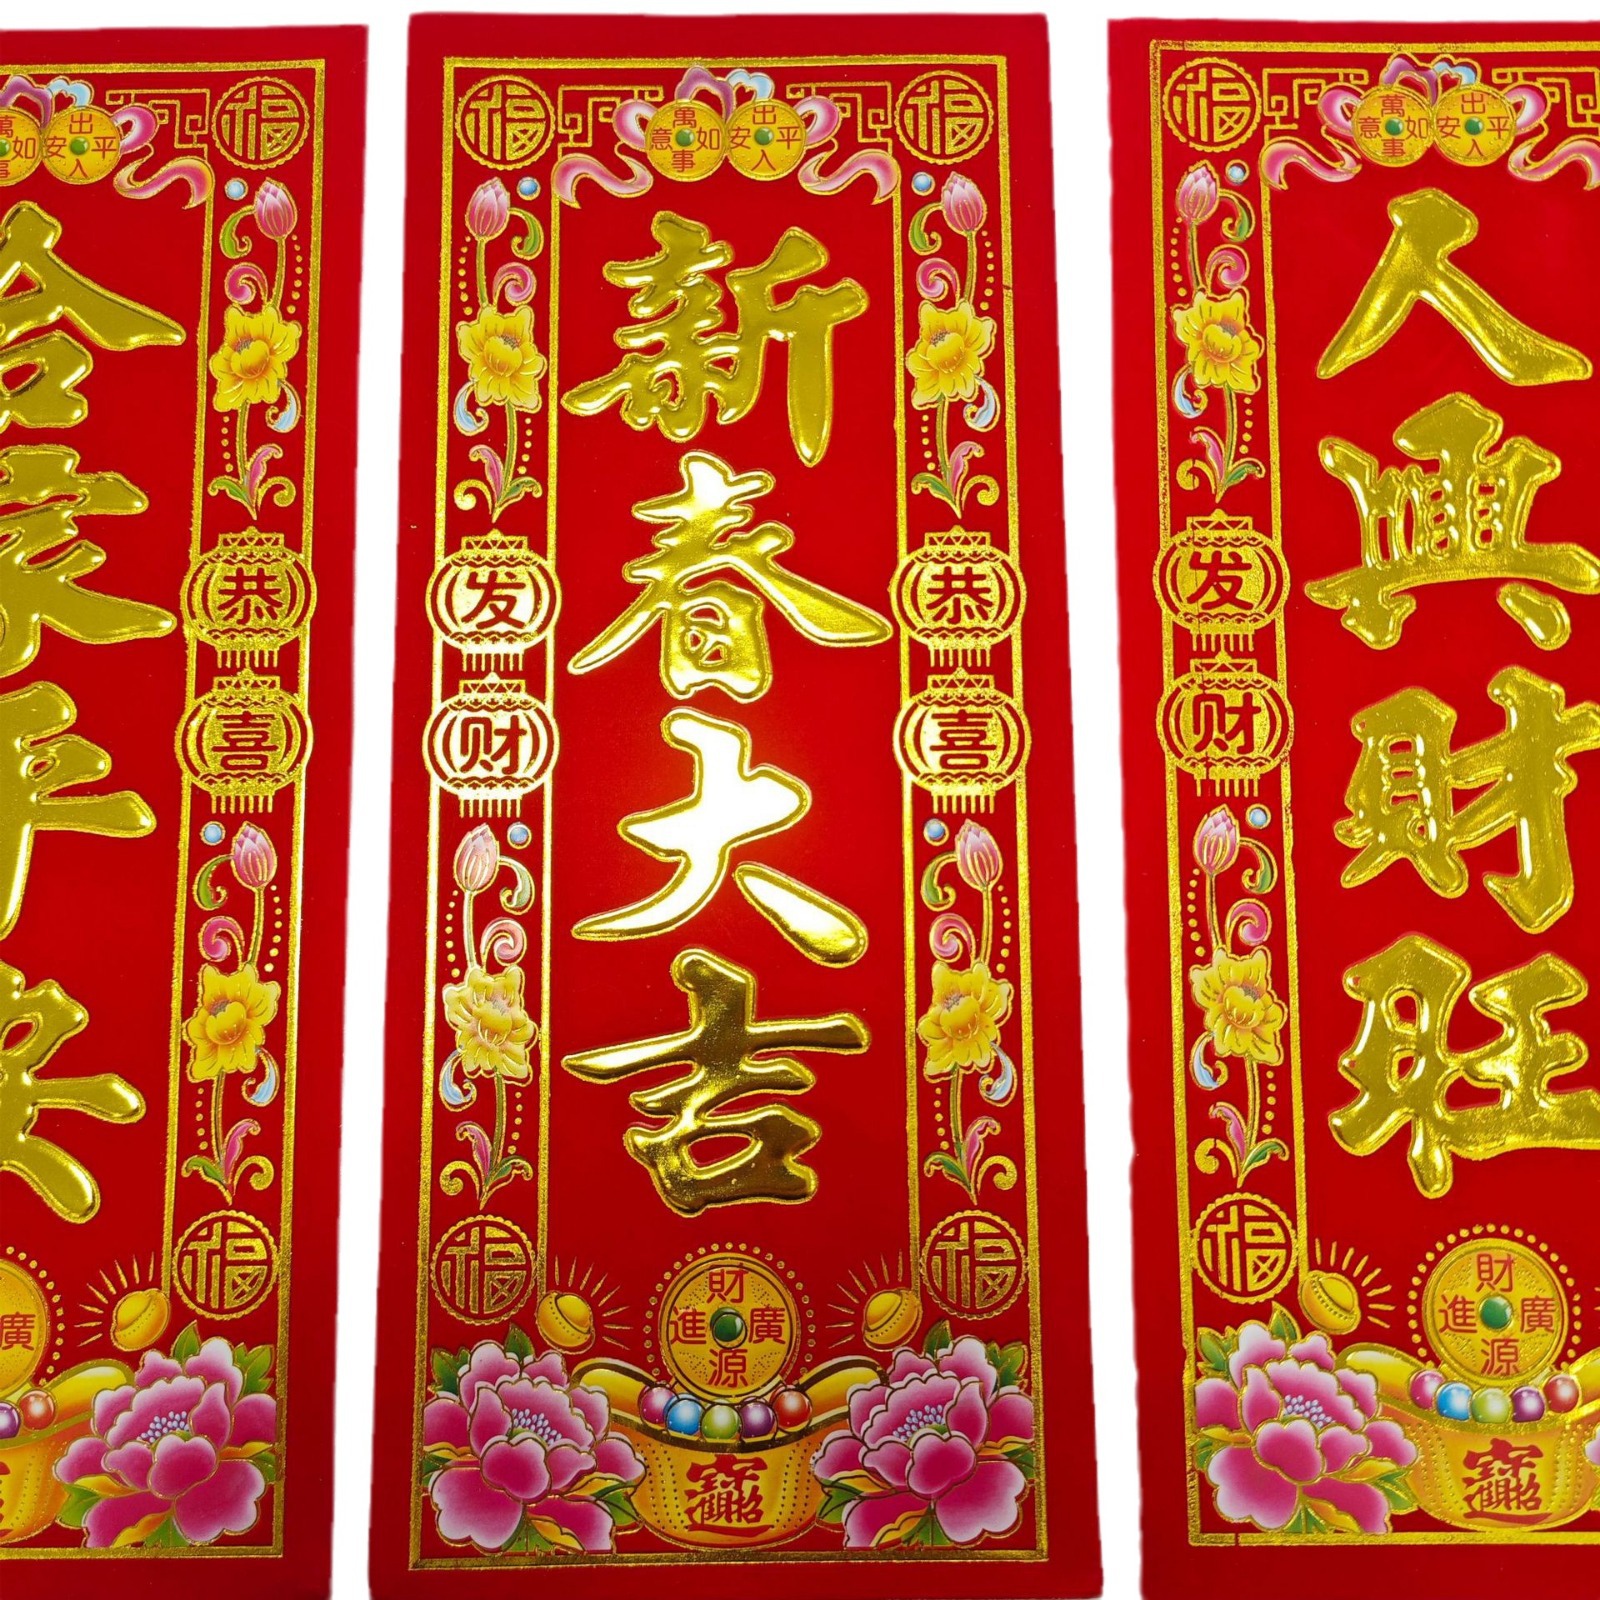 萬事如意
出入平安
福
合家平安
恭喜
福
廣
福
福
萬事如意
出入平安
新春大吉
恭喜
发财
福
福
財源廣進
招財進寶
福
萬事如意
出入平安
人興財旺
发财
福
財源廣進
招財進寶